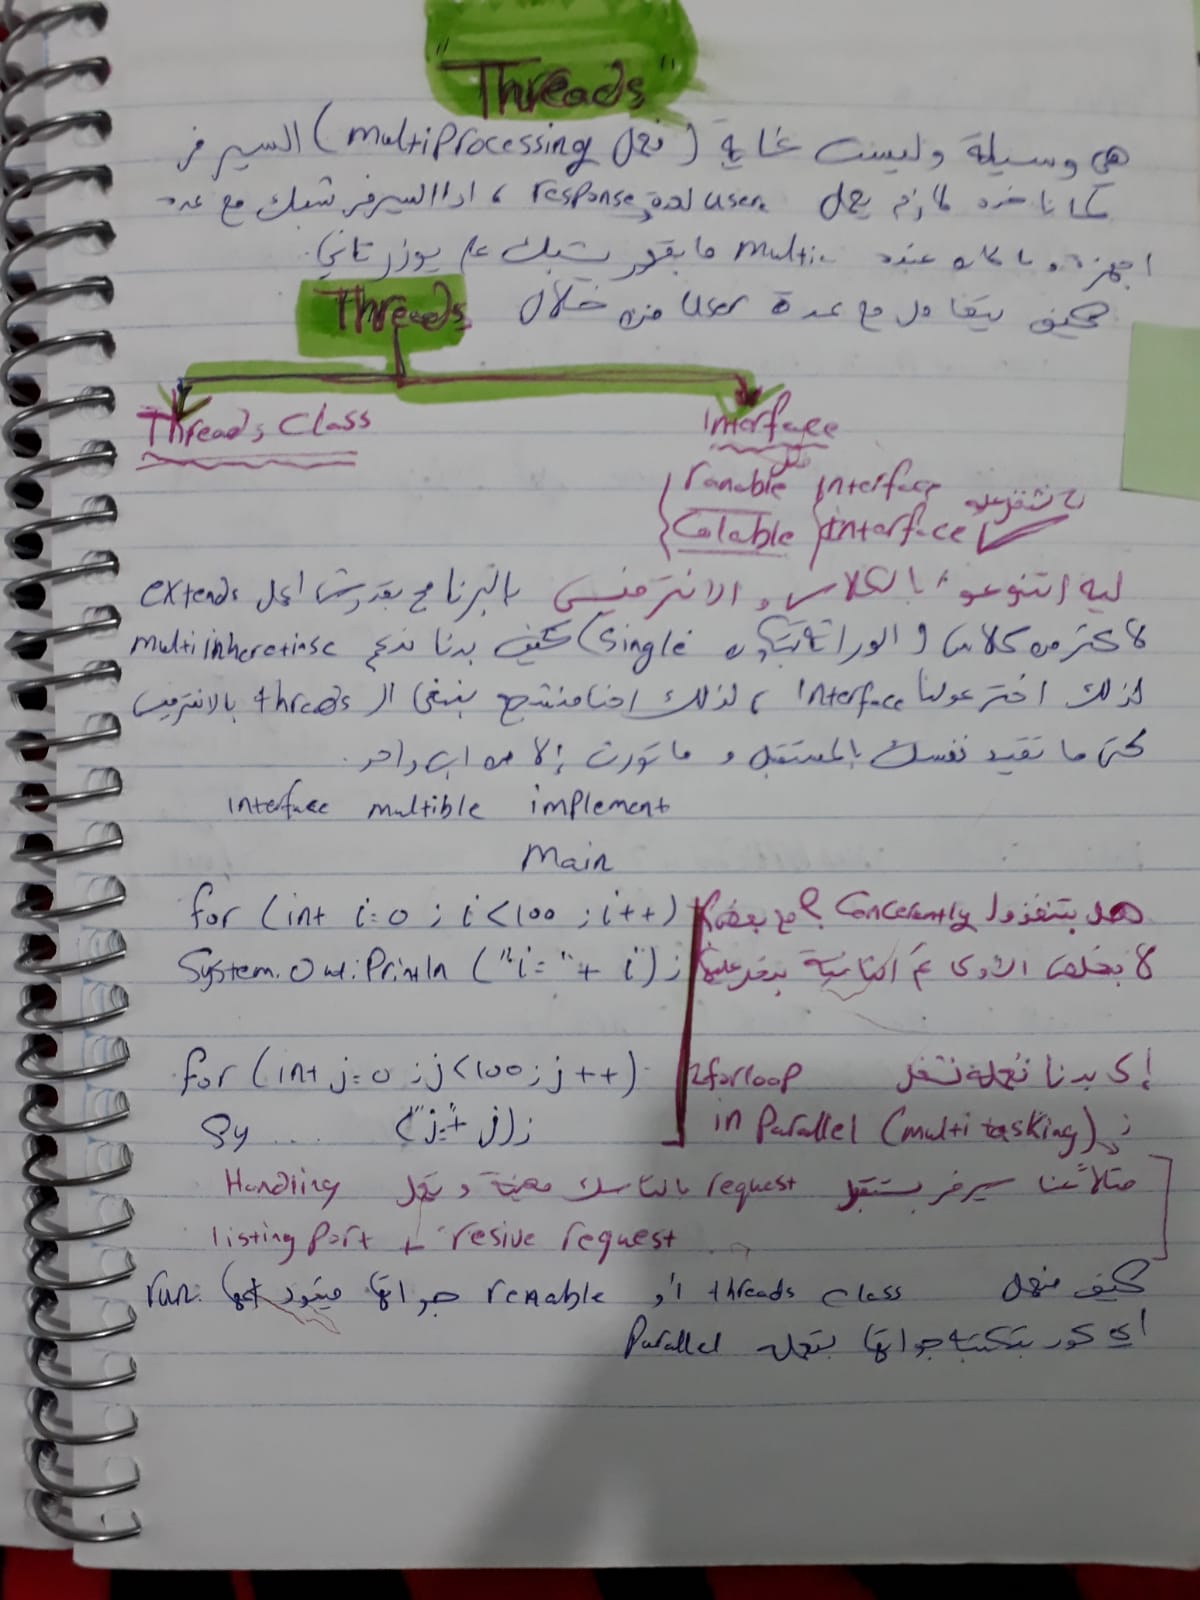 "Threads"
هي وسيلة وليست غاية (نعمل multiprocessing) السيرفر
كانا لازم يعمل response لعدة user، اذا السيرفر شبك مع عدة
اجهزة وما كان عنده multi ما بقدر يشبك مع يوزر تاني.
كيف يتعامل مع عدة user من خلال Threads
Threads Class
Interface
مثل
ranable interface
Calable interface
ليه اتنوعوا بالكلاس والانترفيس بالبرنامج بقدرش اعمل extends
لاكتر من كلاس والوراثة بتكون single) كيف بدنا ندعم multi inheretinse
لذلك اخترعولنا Interface، لذلك احنا بنبغى ال threds بالانترفيس
حتى ما تقيد نفسك بالمستقبل و ما تورث إلا من اب واحد.
interface multible implement
Main
for (int i=0 ; i<100 ; i++)
هل بتنفذوا Concerently مع بعض؟
System.out.Println ("i=" + i);
لا بخلص الأولى ثم الثانية بدخل عليها
for (int j=0 ; j<100 ; j++)
إي بدنا نشغل 2forloop
Sy ... ("j="+ j);
in Parallel (multi tasking)
مثلا عنا سيرفر بستقبل request بالتاسك معينة ونعمل Handling
listing Port + resive request
كيف منعمل threads class أو renable جواتها ميثود اسمها run
اي كود بتكتبه جواتها بتعمله Parallel